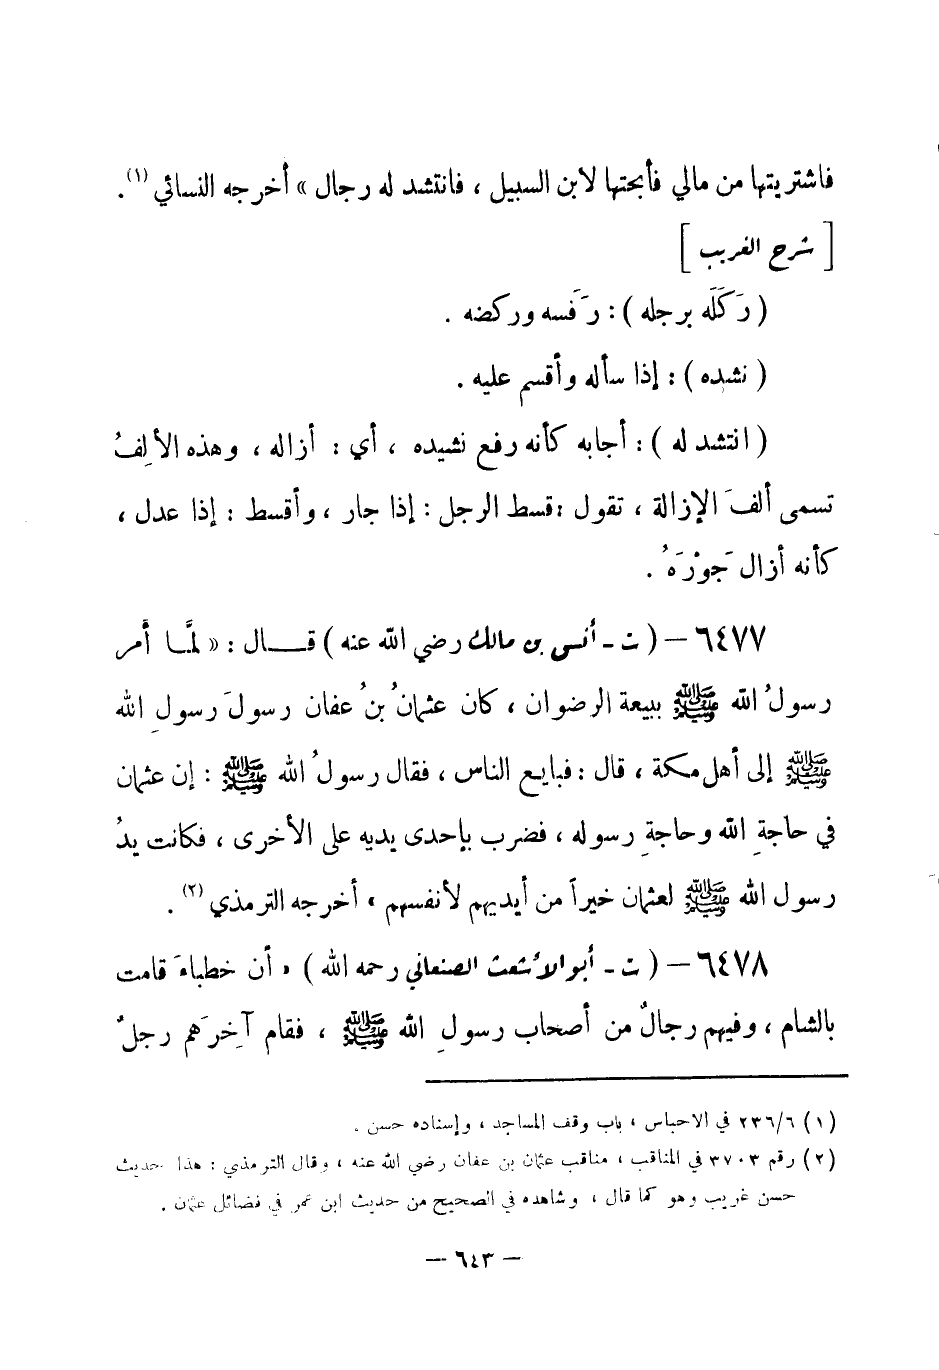 فاشتريتها من مالي فأبحتها لابن السبيل ، فانتشد له رجال » أخرجه النسائي (١) .
[ شرح الغريب ]
( رَكَلَه برجله ) : رَفَسه وركضه .
( نشده ) : إذا سأله وأقسم عليه .
( انتشد له ) : أجابه كأنه رفع نشيده ، أي : أزاله ، وهذه الألِفُ
تسمى ألفَ الإزالة ، تقول : قسط الرجل : إذا جار ، وأقسط : إذا عدل ،
كأنه أزال جَوْرَهُ .
٦٤٧٧ – ( ت - أنس بن مالك رضي الله عنه ) قــال : « لمَّـا أُمر
رسولُ الله ﷺ ببيعة الرضوان ، كان عثمانُ بنُ عفان رسولَ رسولِ الله
ﷺ إلى أهل مكة ، قال : فبايع الناس ، فقال رسولُ الله ﷺ : إن عثمان
في حاجةِ الله وحاجةِ رسوله ، فضرب بإحدى يديه على الأخرى ، فكانت يدُ
رسول الله ﷺ لعثمان خيراً من أيديهم لأنفسهم » أخرجه الترمذي (٢) .
٦٤٧٨ – ( ت - أبو الأشعث الصنعاني رحمه الله ) « أن خطباءَ قامت
بالشام ، وفيهم رجالٌ من أصحاب رسولِ الله ﷺ ، فقام آخِرَهم رجلٌ
(١) ٢٣٦/٦ في الاحباس ، باب وقف المساجد ، وإسناده حسن .
(٢) رقم ٣٧٠٣ في المناقب ، مناقب عثمان بن عفان رضي الله عنه ، وقال الترمذي : هذا حديث
حسن غريب وهو كما قال ، وشاهده في الصحيح من حديث ابن عمر في فضائل عثمان .
– ٦٤٣ –